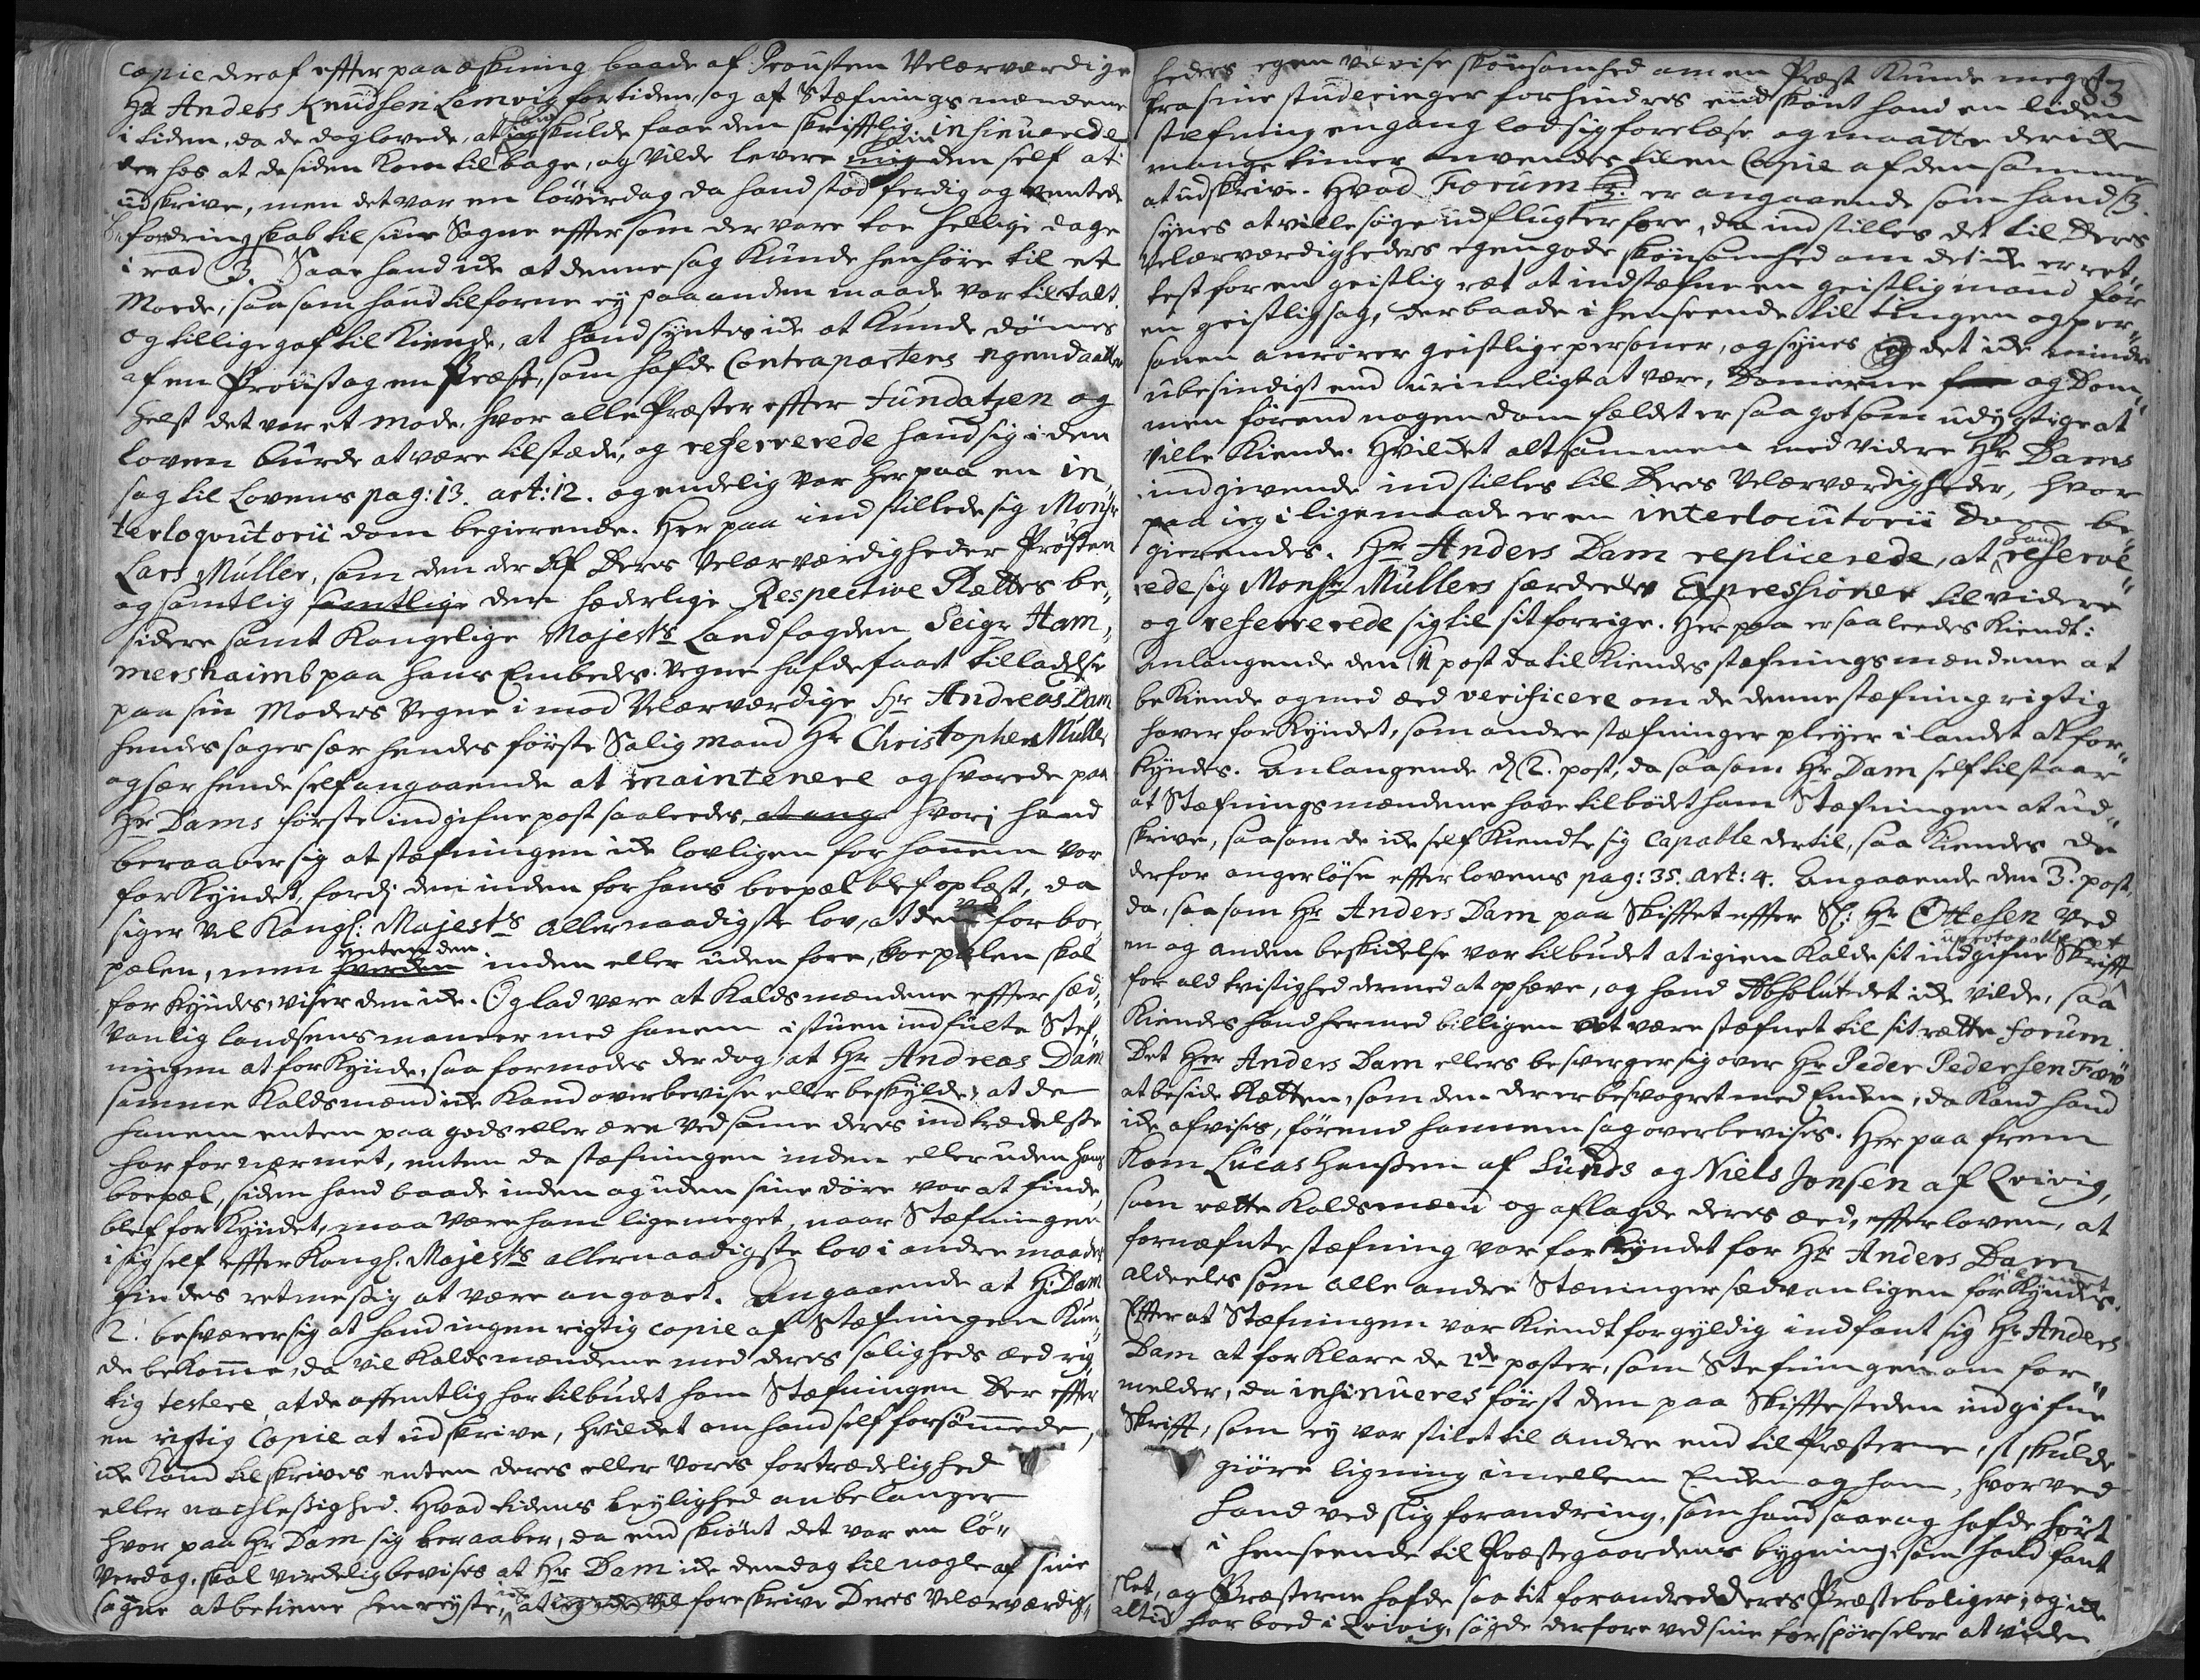 Copie deraf effter paaæskning baade af Prousten Velærværdige
Hr Anders Knudsen Lemvig fortiden, og af Stæfnings mændene
i tiden, da de dog lovede, at hand skulde faae den skrifftlig insinuerede
der hos at de siden kom tilbage, og vilde levere ham den self at
udskrive, men det var en löverdag da hand stod ferdig og ventede
befordringskab til sine Sogne effter som der vare toe hellige dage
i rad 3. Saae hand icke at denne sag kunde henhöre til et
Moede, saasom hand tilforne ey paa anden maade var tiltalt.
og tillige gaf til kiende, at hand syntes icke at kunde dömmes
af en Proust og en Præst, som hafde Contrapartens egen daatter
helst det var et mode, hvor alle Præster effter fundatzen og
loven burde at være tilstæde, og refererede hand sig i den
sag til Lovens pag: 13. art: 12. og endelig var herpaa en in„
terloqvutorii dom begierende. Her paa indstillede sig Monsr
Lars Müller, som den der Af Deres Velærværdigheder Prousten
og samtlig samtlige den hæderlige Respective Rættes be„
sidere samt Kongelige Majestˢ Landfogden Seigr Ham„
mershaimb paa hans Embeds Vegne hafde faaet tilladelse
paa sin Moders Vegne imod Velærværdige Hr Andreas Dam
hendes sager sær hendes förste Salig mand Hr Christopher Müller
og sær hende self angaaende at maintenere og svarede paa
Hr Dams förste indgifne post saaleedes at ang hvori hand
beraaber sig at stæfningen icke lovligen for hannem var
forkyndet, fordi den inden for hans boepæl blef oplæst, da
siger vel Kongl: Majestˢ allernaadigste lov, at den for boe„
pælen, men hverden enten den inden eller uden fore, boepælen skal
forkyndes, viser den icke. Og lad være at Kaldsmændene effter sæd„
vanlig landsens maneer med hannem i stuen indfulte Stef„
ningen at forkynde, saa formodes der dog at Hr Andreas Dam
samme Kaldsmænd icke kand overbevise eller beskylde, at de
hannem enten paa gods eller ære ved samme deres indtrædelse
har fornærmet, enten da stæfningen inden eller uden hans
boepæl, siden hand baade inden og uden sine döre var at finde,
blef forkyndet, maa være ham lige meget, naar Stæfningen
i sig self effter Kongl. Majestˢ allernaadigste lov i andre maader
findes retmessig at være angaaet. Angaaende at Hr Dam
2. besværer sig at hand ingen rigtig copie af Stæfningen kun„
de bekomme, da vil Kaldsmændene med deres saligheds æed rig
tig testere, at de offentlig har tilbudet ham Stæfningen Der effter
en rigtig Copie at udskrive, hvilcket om hand self forsömmede,
icke kand tilskrives enten deres eller vores fortrædelighed
eller nachlessighed. Hvad tidens leylighed anbelanger
hvor paa Hr Dam sig beraaber, da end skiönt det var en lö„
verdag, skal virckelig bevises at Hr Dam icke den dag til nogle af sine
sogne at betiene henreyste, at foreskrive Deres Velærværdig„
83
heders egen vilvise skiönsomhed om en Præst kunde meget
fra sine studeringer forhindres endskiönt hand en liden
stæfning engang lod sig forelæse og maatte der icke
mange timer anvendes til en Copie af den samme
at udskrive. Hvad Forum er angaaende som hand 3.
synes at ville söge udflugter fore, da indstilles det til Deres
Velærværdigheders egen gode skiönsomhed om det icke er ret„
test for en geistlig ræt at indstæfne en geistlig mand for
en geistlig sag, der baade i henseende til tingen og per„
sonen anrörer geistlige personer, og synes det icke mindre
ubesindigt end urimeligt at være, Domerne og Dom„
men förend nogen dom fældet er saa got som udygtige at
ville kiende. Hvilcket altsammen med videre Hr Dams
indgivende indstilles til Deres Velærværdigheder, hvor
paa ieg i lige maade er en interlocutorii Dom be„
gierendes. Hr Anders Dam replicerede, at hand reserve„
rede sig Monsr Müllers særdeeles Expressioner til videre
og refererede sig til sit forrige. Her paa er saaleedes kiendt:
Anlangende den 1 post da tilkiendes stæfningsmændene at
bekiende og med æed verificere om de denne stæfning rigtig
haver forkyndet, som andre stæfninger pleyer i landet at for„
kyndes. Anlangende d 2. post, da saasom Hr Dam self tilstaar
at Stæfningsmændene have tilbödet ham Stæfningen at ud„
skrive, saasom de icke self kiendte sig capable dertil, saa kiendes de
derfor angerlöse effter lovens pag: 35. art: 4. Angaaende den 3. post,
da, saasom Hr Anders Dam paa Skifftet effter Sl: Hr Ottesen ved
en og anden beskickelse var tilbudet at igien kalde sit indgifne uprotocollered Skrifft
for ald tvistighed dermed at ophæve, og hand Absolut det icke vilde, saa
kiendes hand hermed billigen at være stæfnet til sit rætte Forum.
Det Hr Anders Dam ellers besverger sig over Hr Peder Pedersen Færö
at beside Rætten, som den der er besvogret med Encken, da kand hand
icke afvises, förend hannem sag overbevises. Her paa frem
kom Lucas Hansen af Sunds og Niels Jonsen af Qvivig,
som rætte Kaldsmænd og aflagde deres æed, effter loven, at
fornæfnte stæfning var forkyndet for Hr Anders Dam
aldeeles som alle andre Stæninger sædvanligen i landet forkyndes.
Effter at Stæfningen var kiendt for gyldig indfant sig Hr Anders
Dam at forklare de 2de poster, som Stefningen om for„
melder, da insinueres först den paa Skifftesteden indgifne
Skrifft, som ey var stilet til andre end til Præsterne, at skulde
giöre ligning imellem Encken og ham, hvor ved
hand ved slig forandring, som hand saae og hafde hört
i henseende til Præstegaardens bygning, som hand fant
slet, og Præsterne hafde saa tit forandred deres Præsteboliger, og icke
altid har boed i Qvivig, sögde derfore ved sine forspörseler at viden